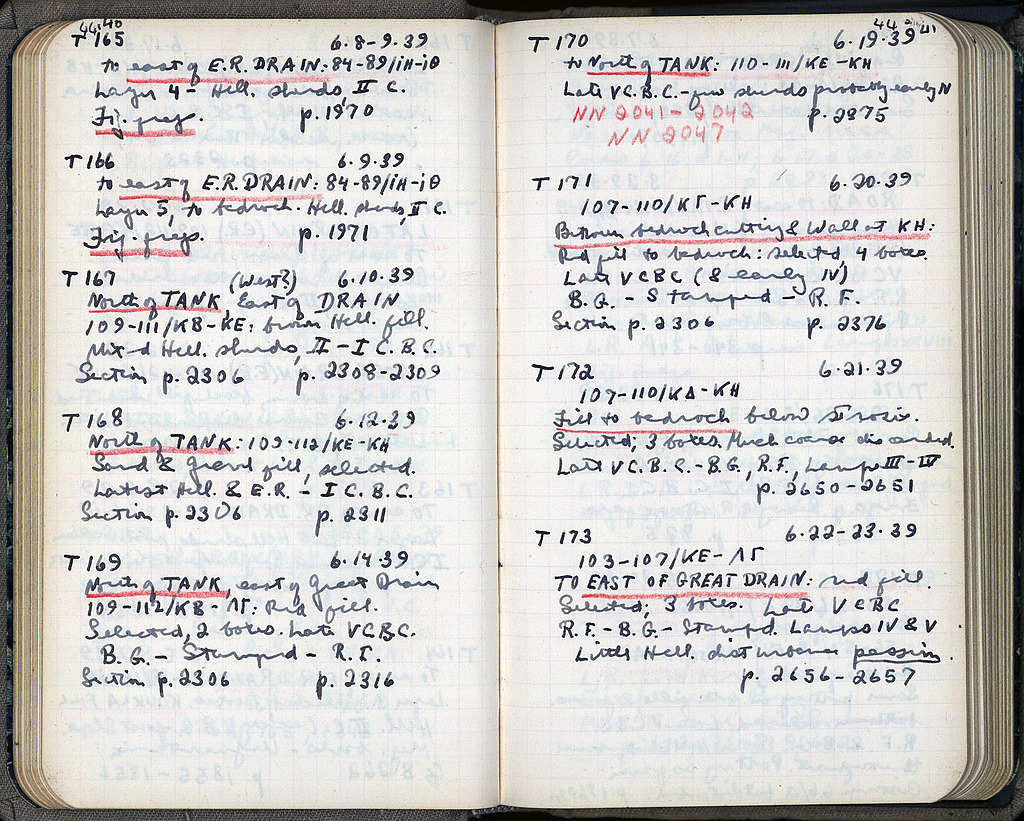 44 40
T 165 6.8-9.39
to east of E.R. DRAIN: 84-89/ΙΗ-ΙΘ
Layer 4 - Hell. sherds, II C.
Fig. frags. p. 1970
T 166 6.9.39
to east of E.R. DRAIN: 84-89/ΙΗ-ΙΘ
Layer 5, to bedrock. Hell. sherds II C.
Fig. frags. p. 1971
T 167 (West?) 6.10.39
North of TANK, East of DRAIN
109-111/ΚΒ-ΚΕ: brown Hell. fill.
Mixed Hell. sherds, II-I C.B.C.
Section p. 2306 p. 2308-2309
T 168 6.12.39
North of TANK: 109-112/ΚΕ-ΚΗ
Sand & gravel fill, selected.
Latest Hell. & E.R. - I C.B.C.
Section p. 2306 p. 2311
T 169 6.14.39
North of TANK, east of Great Drain
109-112/ΚΒ-ΛΓ: Red fill.
Selected, 2 boxes. Late V C BC.
B.G. - Stamped - R.F.
Section p. 2306 p. 2316
44 41
T 170 6.19.39
to North of TANK: 110-111/ΚΕ-ΚΗ
Late V C.B.C. - few sherds probably early IV
NN 2041-2042 p. 2375
NN 2047
T 171 6.20.39
107-110/ΚΓ-ΚΗ
Between bedrock cutting & Wall at ΚΗ:
Red fill to bedrock: selected, 4 boxes.
Late V C BC (& early IV)
B.G. - Stamped - R.F.
Section p. 2306 p. 2376
T 172 6.21.39
107-110/ΚΔ-ΚΗ
Fill to bedrock below
Selected; 3 boxes. Much coarse discarded.
Late V C.B.C. - B.G., R.F., Lamps III-IV
p. 2650-2651
T 173 6.22-23.39
103-107/ΚΕ-ΛΓ
TO EAST OF GREAT DRAIN: red fill.
Selected; 3 boxes. Late V C BC
R.F. - B.G. - Stampd. Lamps IV & V.
Little Hell. disturbance passim.
p. 2656-2657